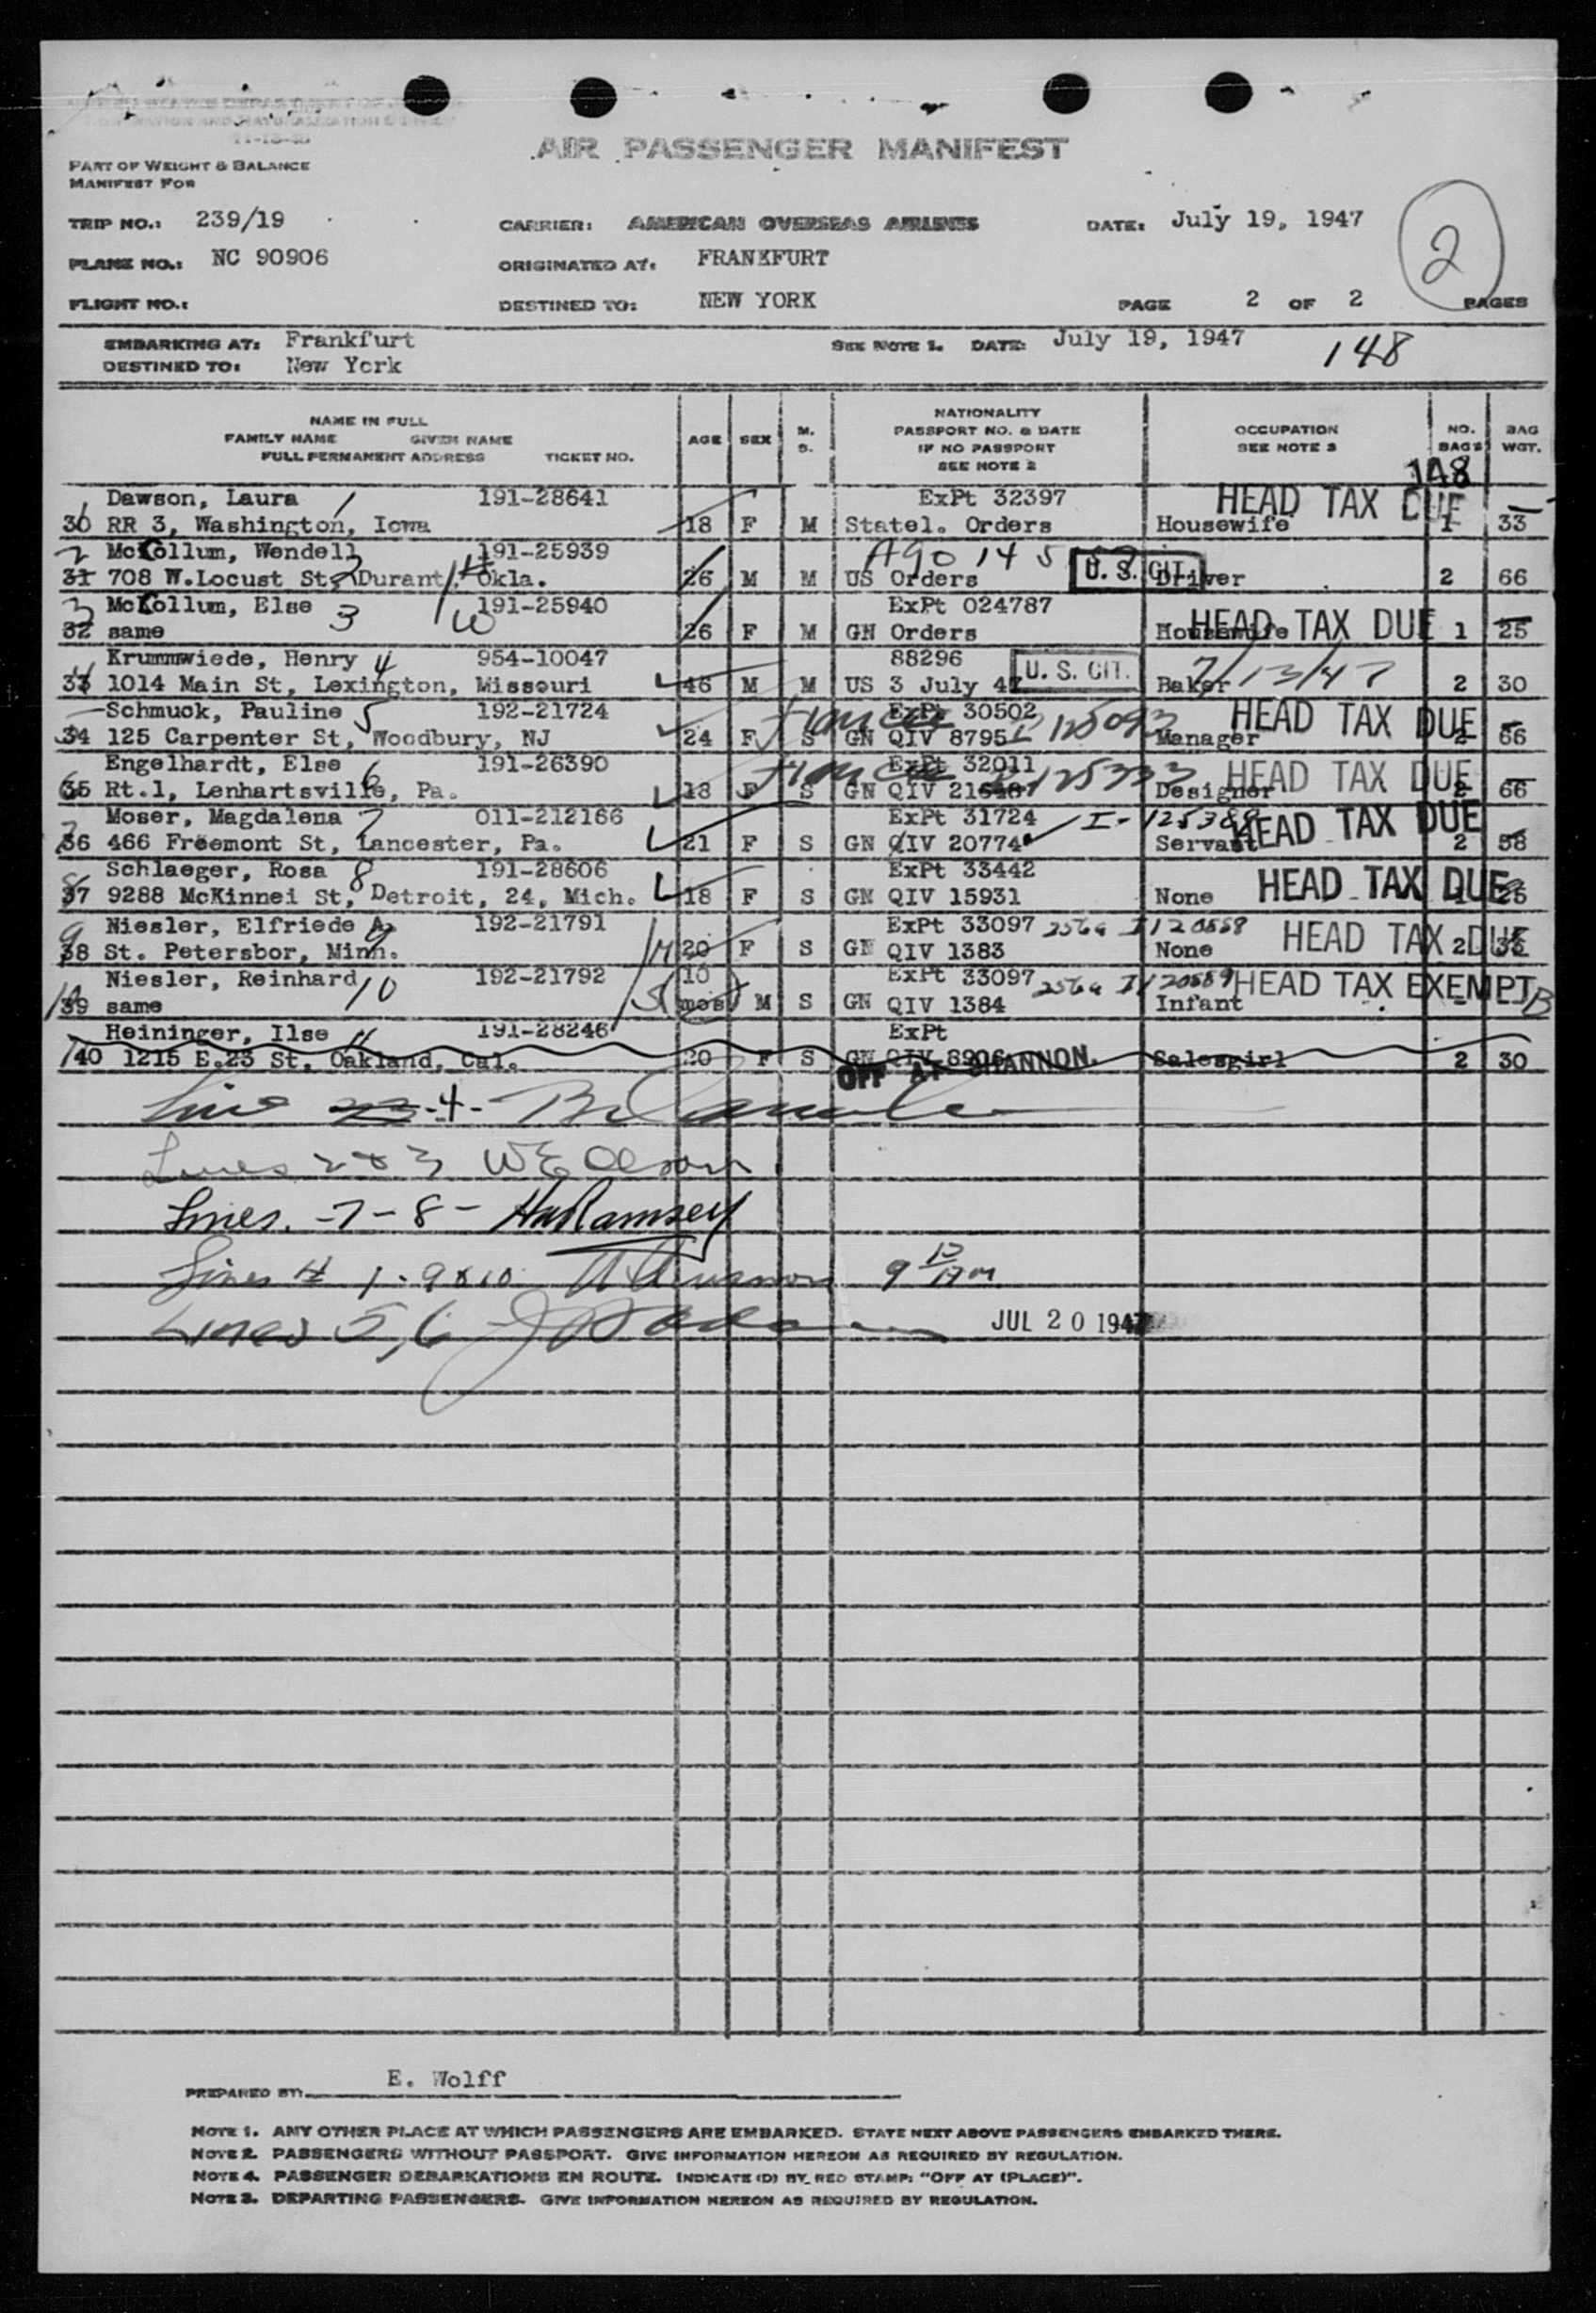 AIR PASSENGER MANIFEST
PART OF WEIGHT & BALANCE
MANIFEST FOR
TRIP NO.: 239/19 CARRIER: AMERICAN OVERSEAS AIRLINES DATE: July 19, 1947
PLANE NO.: NC 90906 ORIGINATED AT: FRANKFURT 2
FLIGHT NO.: DESTINED TO: NEW YORK PAGE 2 OF 2 PAGES
EMBARKING AT: Frankfurt SEE NOTE 1. DATE: July 19, 1947 148
DESTINED TO: New York
NAME IN FULL
FAMILY NAME GIVEN NAME
FULL PERMANENT ADDRESS TICKET NO.
AGE SEX M. S.
NATIONALITY
PASSPORT NO. & DATE
IF NO PASSPORT
SEE NOTE 2
OCCUPATION
SEE NOTE 3
NO. BAGS
BAG WGT.
148
1 Dawson, Laura 1 191-28641 ExPt 32397 HEAD TAX DUE
30 RR 3, Washington, Iowa 18 F M Statel. Orders Housewife 1 33
2 McCollum, Wendell 2 191-25939 AGO
31 708 W.Locust St, Durant, Okla. 26 M M US Orders U. S. CIT. Driver 2 66
3 McCollum, Else 3 191-25940 ExPt 024787 HEAD TAX DUE
32 same 26 F M GN Orders Housewife 1 25
Krummwiede, Henry 4 954-10047 88296 U. S. CIT. 7/13/47
33 1014 Main St, Lexington, Missouri 46 M M US 3 July 47 Baker 2 30
Schmuck, Pauline 5 192-21724 ExPt 30502 HEAD TAX DUE
34 125 Carpenter St, Woodbury, NJ 24 F S GN QIV 8795 Manager 2 66
Engelhardt, Else 6 191-26390 ExPt 32011 HEAD TAX DUE
35 Rt.1, Lenhartsville, Pa. 18 F S GN QIV Designer 2 66
Moser, Magdalena 7 011-212166 ExPt 31724 I-125388 HEAD TAX DUE
36 466 Freemont St, Lancester, Pa. 21 F S GN QIV 20774 Servant 2 58
8 Schlaeger, Rosa 8 191-28606 ExPt 33442 HEAD TAX DUE
37 9288 McKinnei St, Detroit, 24, Mich. 18 F S GN QIV 15931 None
9 Niesler, Elfriede A. 9 192-21791 ExPt 33097 HEAD TAX DUE
38 St. Petersbor, Minn. 20 F S GN QIV 1383 None 2
10 Niesler, Reinhard 10 192-21792 10 ExPt 33097 HEAD TAX EXEMPT
39 same mos M S GN QIV 1384 Infant
Heininger, Ilse 11 191-28246 ExPt
40 1215 E.23 St. Oakland, Cal. 20 F S GN QIV 8906 Salesgirl 2 30
OFF AT SHANNON.
Line 4
Lines 2 & 3 W E Olson
Lines. -7-8- Ramsey
Lines # 1-9&10
Lines 5,6 JUL 20 1947
PREPARED BY: E. Wolff
NOTE 1. ANY OTHER PLACE AT WHICH PASSENGERS ARE EMBARKED. STATE NEXT ABOVE PASSENGERS EMBARKED THERE.
NOTE 2. PASSENGERS WITHOUT PASSPORT. GIVE INFORMATION HEREON AS REQUIRED BY REGULATION.
NOTE 4. PASSENGER DEBARKATIONS EN ROUTE. INDICATE (D) BY RED STAMP: "OFF AT (PLACE)".
NOTE 3. DEPARTING PASSENGERS. GIVE INFORMATION HEREON AS REQUIRED BY REGULATION.